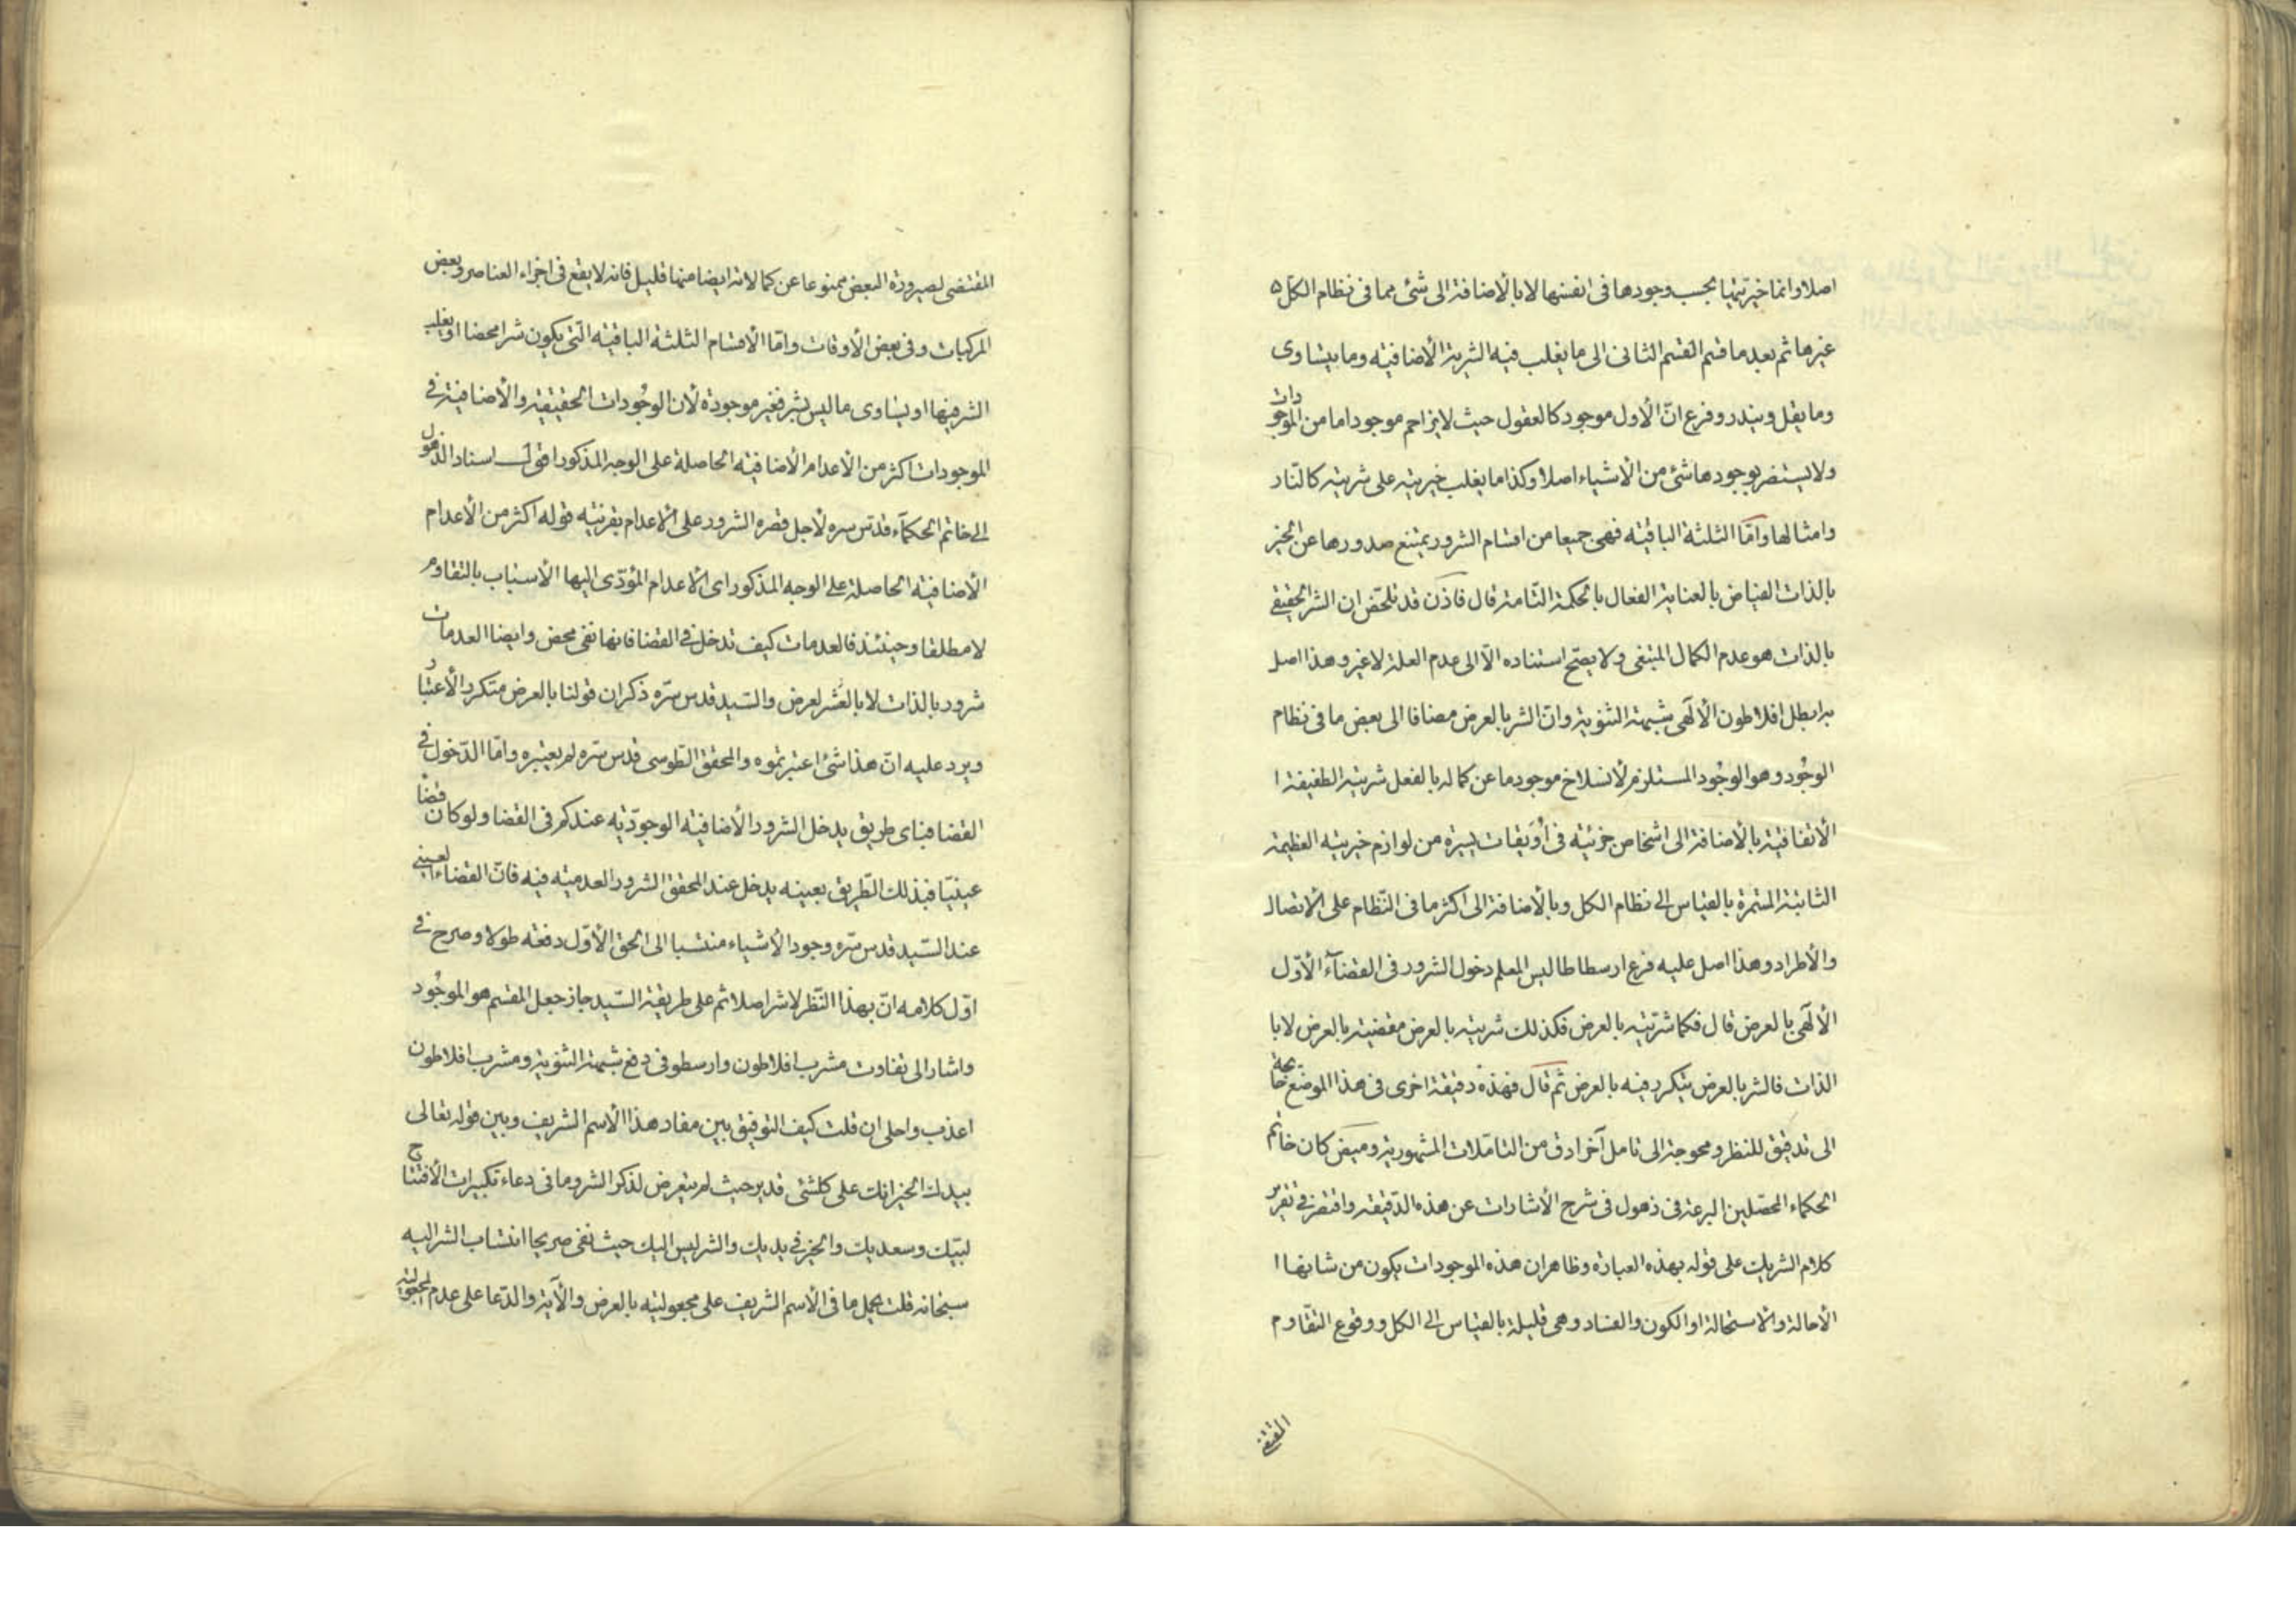 اصلا وانما خيريتها بحسب وجودها فى انفسها لا بالأضافة الى شئ مما فى نظام الكل ه
غيرها ثم بعد ما قسم القسم الثانى الى ما يغلب فيه الشرية الأضافيه وما يتساوى
وما يقل ويندر وفرع انّ الأول موجود كالعقول حيث لا يزاحم موجودا ما من الموجودات
ولا يستضر بوجودها شئ من الأشياء اصلا وكذا ما يغلب خيريته على شريته كالنّار
وامثالها وامّا الثلثة الباقيه فهى جميعا من اقسام الشرور يمتنع صدورها عن الخير
بالذات الفياض بالعناية الفعال بالحكمة التّامة قال فاذن قد تلخّص ان الشر الحقيقى
بالذات هو عدم الكمال المبتغى ولا يصحّ استناده الّا الى عدم العلة لا غير وهذا اصل
به ابطل افلاطون الألهى شبهة الثنوية وانّ الشر بالعرض مضافا الى بعض ما فى نظام
الوجُود وهو الوجُود المستلزم لأنسلاخ موجود ما عن كماله بالفعل شريته الطفيفة ا
الأتفاقية بالأضافة الى اشخاص جزئيه فى أُوَيقات يسيرة من لوازم خيريته العظيمة
الثابتة المستمرة بالقياس الى نظام الكل وبالأضافة الى اكثر ما فى النّظام على الأتصال
والأطراد وهذا اصل عليه فرع ارسطاطاليس المعلم دخول الشرور فى القضآء الأوّل
الألهى بالعرض قال فكما شرّيته بالعرض فكذلك شريته بالعرض مقضية بالعرض لا با
الذات فالشر بالعرض يتكرر فيه بالعرض ثم قال فهذه دقيقة اخرى فى هذا الموضع محتاجة
الى تدقيق للنظر ومحوجة الى تامل آخر ادق من التاملات المشهورية وميض كان خاتم
الحكماء المحصّلين البرعة فى ذهول فى شرح الأشارات عن هذه الدّقيقة واقتصر فى تقرير
كلام الشريك على قوله بهذه العبارة وظاهر ان هذه الموجودات يكون من شانها ا
الأحالة والأستحالة او الكون والفساد وهى قليلة بالقياس الى الكل ووقوع التقاوم
المقتضى
المقتضى لصيرورة البعض ممنوعا عن كمالاته ايضا منها قليل فانه لا يقع فى اجزاء العناصر وبعض
المركبات وفى بعض الأوقات وامّا الأقسام الثلثة الباقيه الّتى يكون شرا محضا او يغلب
الشر فيها او يساوى ما ليس بشر فغير موجودة لأن الوجُودات الحقيقيه والأضافية فى
الموجودات اكثر من الأعدام الأضافيه الحاصلة على الوجه المذكور اقول اسناد الذهول
الى خاتم الحكمآء قدّس سره لأجل قصره الشرور على الأعدام بقرينه قوله اكثر من الأعدام
الأضافيه الحاصلة على الوجه المذكور اى الأعدام المؤدّى اليها الأسباب بالتقاوم
لا مطلقا وحينئذ فالعدمات كيف تدخل فى القضا فانها نفى محض وايضا العدمات
شرور بالذات لا بالعرض والسّيد قدس سّره ذكر ان قولنا بالعرض متكرر الأعتبا
ويرد عليه انّ هذا شئ اعتبرتموه والمحقق الطّوسى قدس سّره لم يعتبره وامّا الدّخول فى
القضا فباى طريق يدخل الشرور الأضافيه الوجوديّه عندكم فى القضا ولو كان قضا
عينيّا فبذلك الطّريق بعينه يدخل عند المحقق الشرور العدميه فيه فانّ القضاء العينى
عند السّيد قدس سّره وجود الأشياء منتسبا الى الحق الأوّل دفعه طولا وصرح فى
اوّل كلامه انّ بهذا النّظر لا شر اصلا ثم على طريقة السّيد جاز جعل المقسم هو الموجُود
واشار الى تفاوت مشرب افلاطون وارسطو فى دفع شبهة الثنوية ومشرب افلاطون
اعذب واحلى ان قلت كيف التوفيق بين مفاد هذا الأسم الشريف وبين قوله تعالى
بيدك الخير انك على كلشئ قدير حيث لم يتعرض لذكر الشر وما فى دعاء تكبيرات الأفتتاح
لبّيك وسعديك والخير فى يديك والشر ليس اليك حيث نفى صريحا انتساب الشر اليه
سبحانه قلت يحمل ما فى الأسم الشريف على مجعوليته بالعرض والآية والدّعا على عدم المجعولية